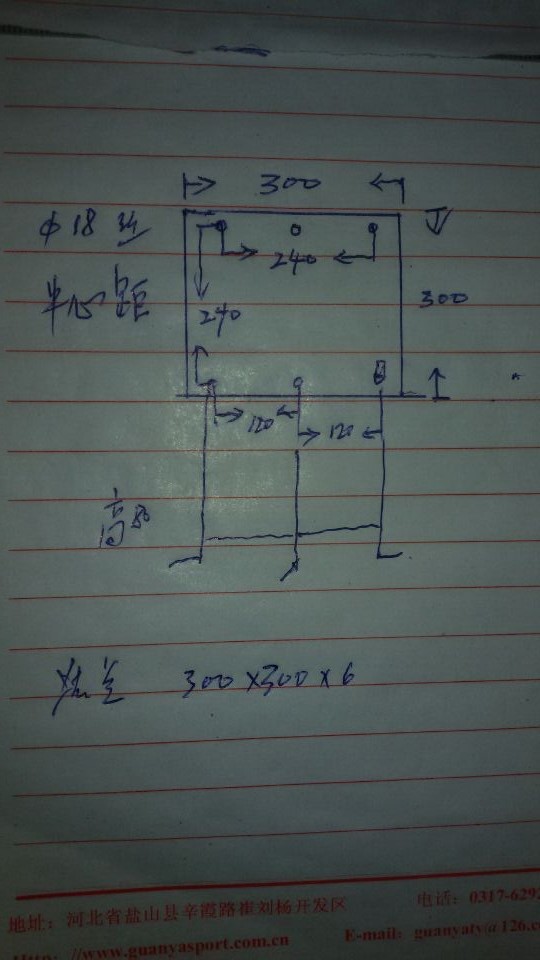 300
φ18
240
中心距
240
300
120
120
高80
300×300×6
地址：河北省盐山县辛霞路崔刘杨开发区
电话：0317-629
Http：//www.guanyasport.com.cn
E-mail：guanyaty@126.co